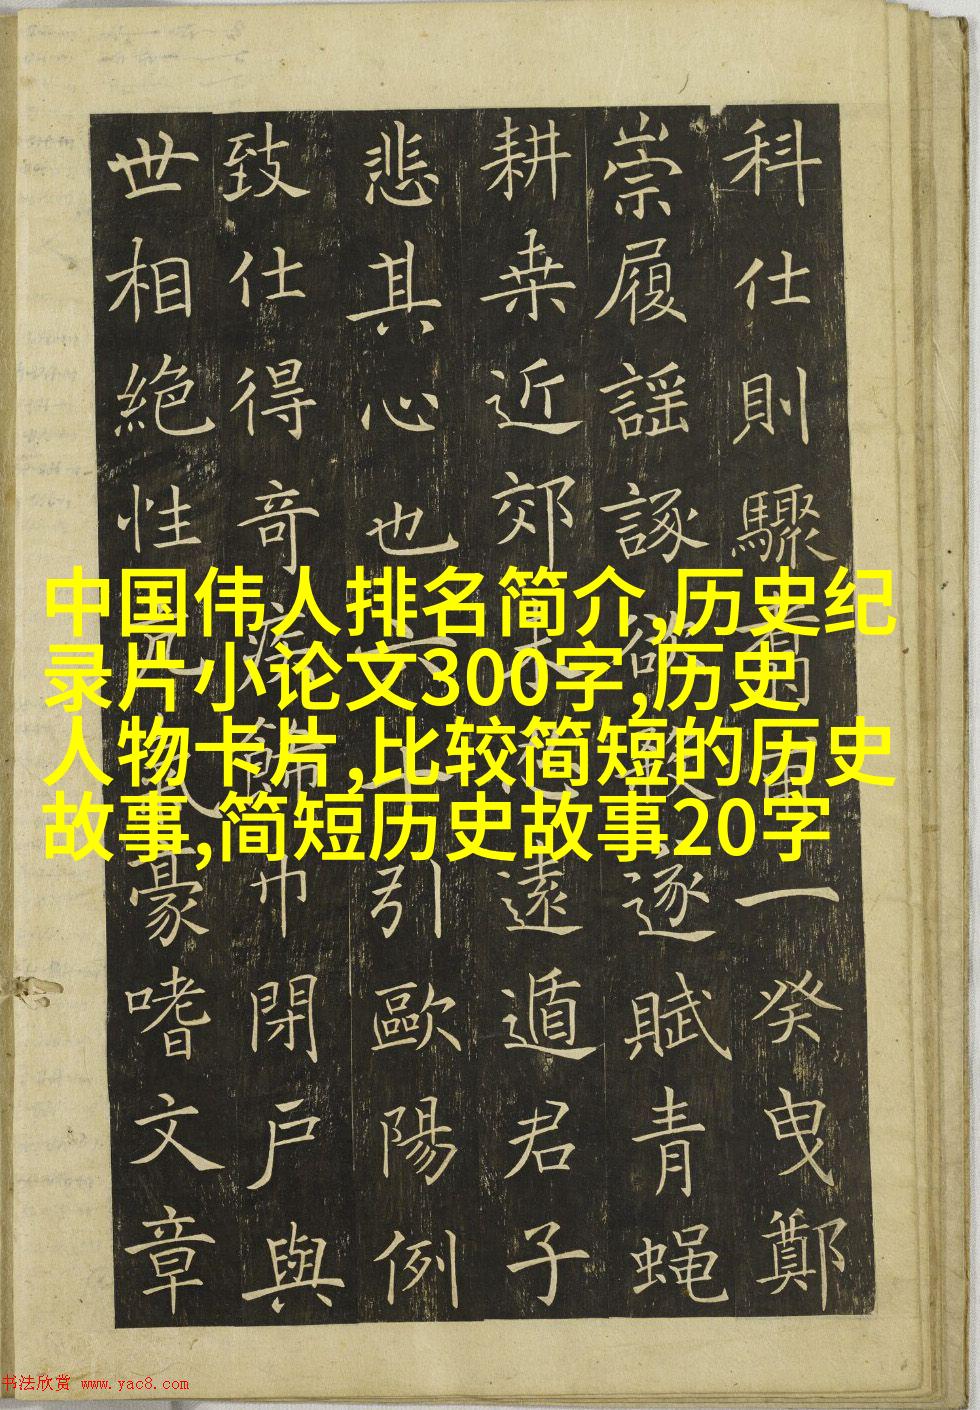 科仕則驟一癸曳鄭
崇履謡諑逐賦青蝿
耕桒近郊遠遁君子
悲其心也六十引歐陽例
致仕得奇病巾閉戸與
世相絶性豪嗜文章
中国伟人排名简介,历史纪
录片小论文300字,历史
人物卡片,比较简短的历史
故事,简短历史故事20字
书法欣赏 www.yac8.com